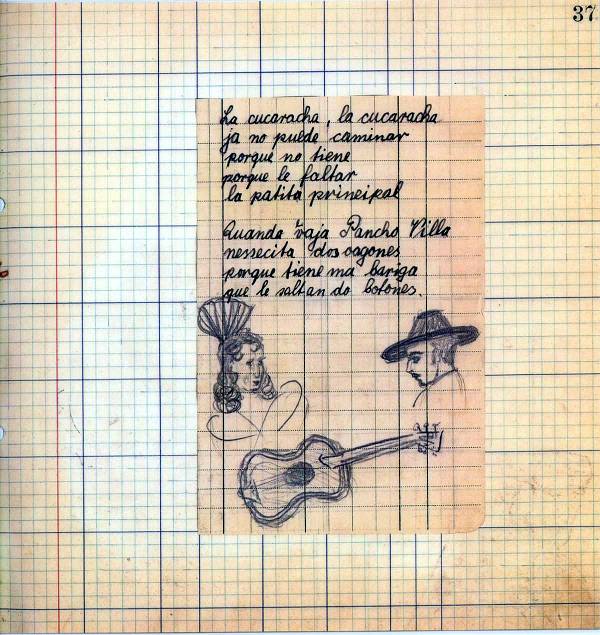 37
La cucaracha, la cucaracha
ja no puede caminar
porque no tiene
porque le faltar
la patita principal
Quando vaja Pancho Villa
nessecita dos vagones
porque tiene ma bariga
que le saltan do botones.